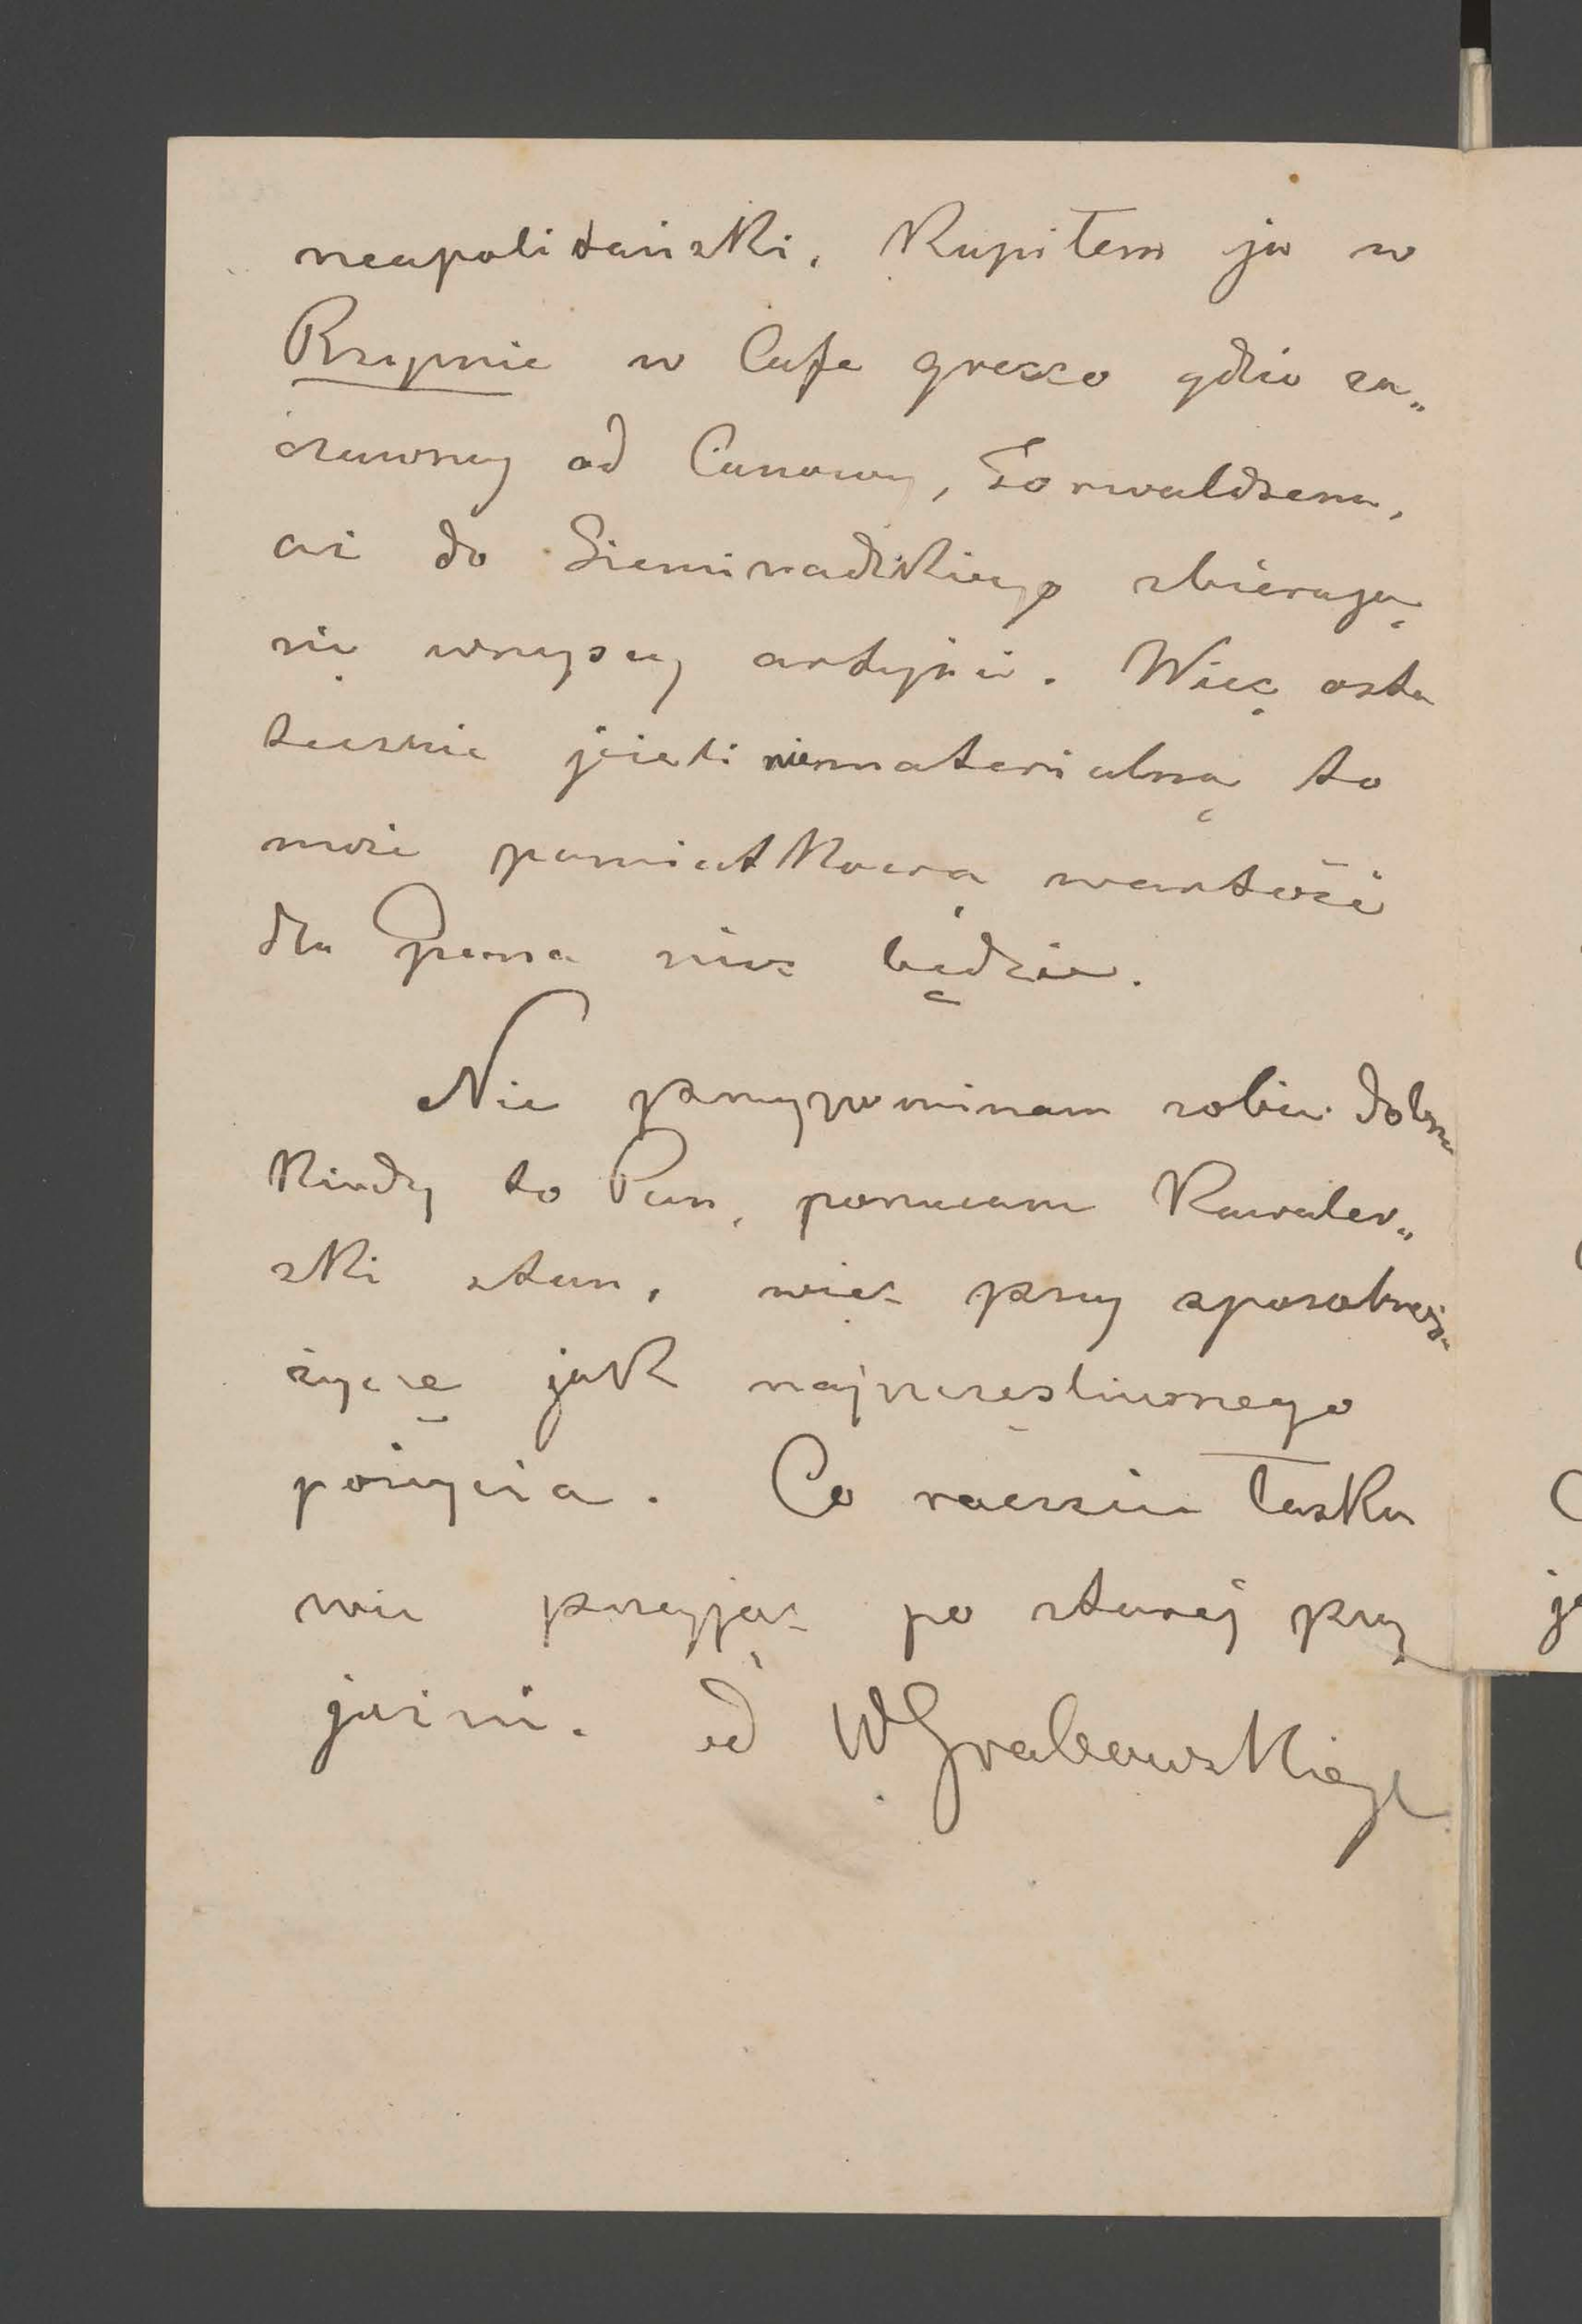 neapolitański. Kupiłem ja w
Rzymie w Cafe gresso gdzie za„
czawszy od Canowy, Torwaldsena,
aż do Siemiradzkiego zbierają
się wszyscy artyści. Więc osta
tecznie jeżeli niematerialną to
może pamiątkową wartość
dla Pana mieć będzie.
Nie przypominam sobie dobrze
kiedy to Pan, porzucam Kawaler„
ski stan, więc przy sposobności
życzę jak najszczęśliwszego
pożycia. Co raczcie łaska
wie przyjąć po starej przy
jaźni. od WGrabowskiego